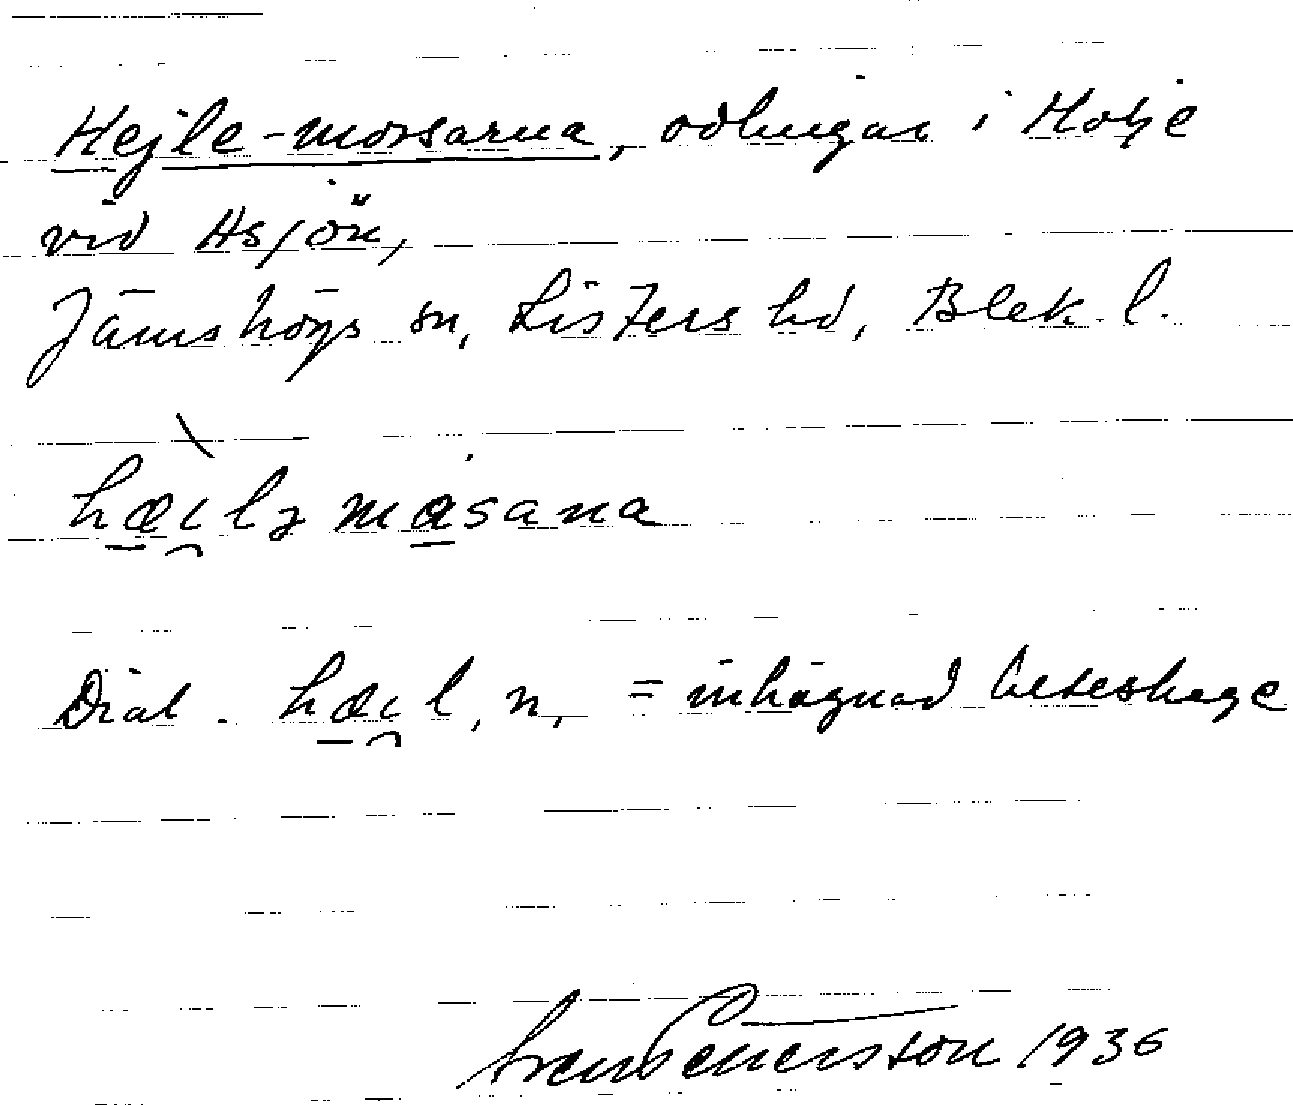 Hejle-mossarna, odlingar i Holje
vid Hsjön,
Jämshögs sn, Listers hd, Blek. l.
hæilə måsana
Dial. hæil, n, = inhägnad beteshage
Sven Benersson 1936